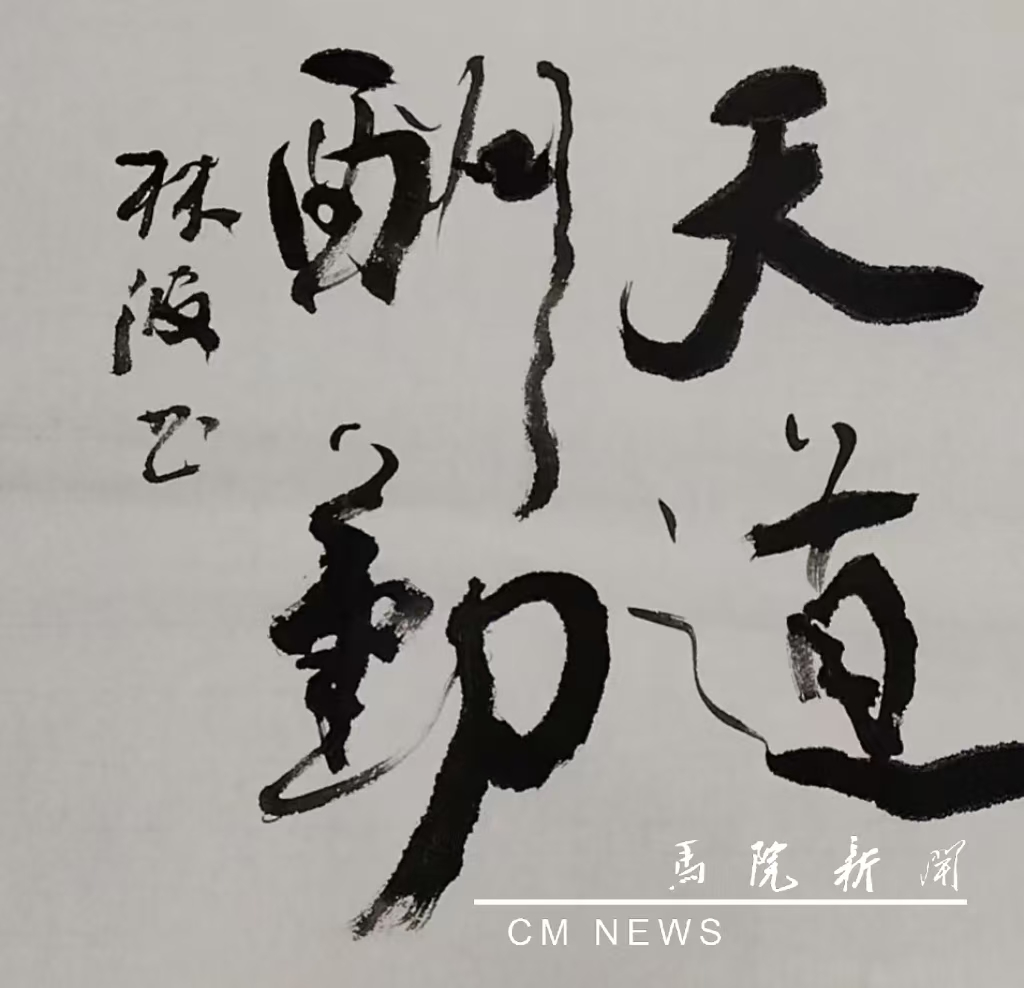 天道
酬勤
林波书
馬院新聞
CM NEWS